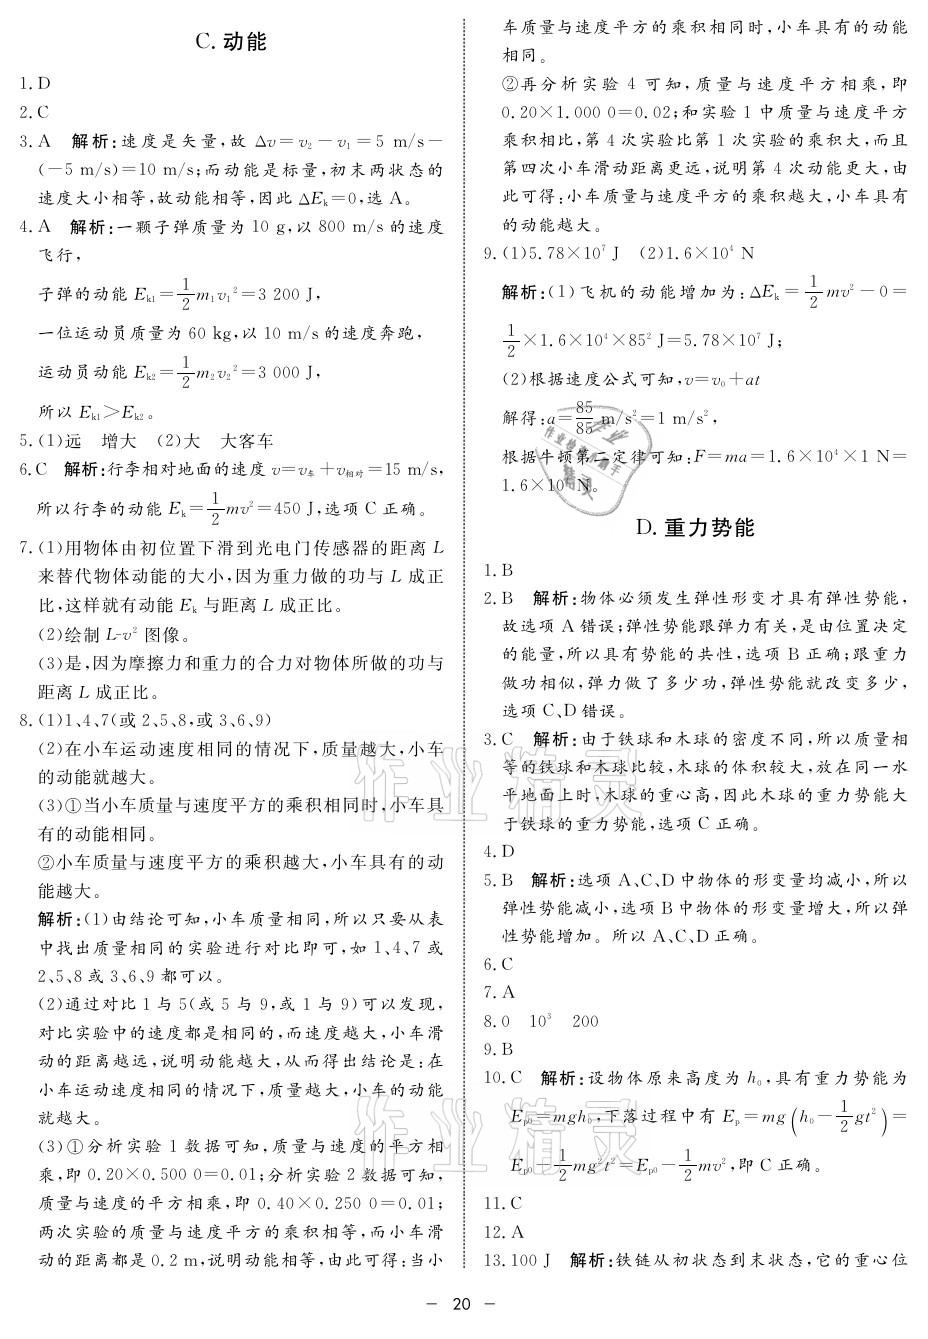 C. 动能
1. D
2. C
3. A　解析:速度是矢量,故 Δv=v₂-v₁=5 m/s-
(-5 m/s)=10 m/s;而动能是标量,初末两状态的
速度大小相等,故动能相等,因此 ΔEₖ=0,选 A。
4. A　解析:一颗子弹质量为 10 g,以 800 m/s 的速度
飞行,
子弹的动能 Eₖ₁=1/2 m₁v₁²=3 200 J,
一位运动员质量为 60 kg,以 10 m/s 的速度奔跑,
运动员动能 Eₖ₂=1/2 m₂v₂²=3 000 J,
所以 Eₖ₁>Eₖ₂。
5. (1)远　增大　(2)大　大客车
6. C　解析:行李相对地面的速度 v=v车+v相对=15 m/s,
所以行李的动能 Eₖ=1/2 mv²=450 J,选项 C 正确。
7. (1)用物体由初位置下滑到光电门传感器的距离 L
来替代物体动能的大小,因为重力做的功与 L 成正
比,这样就有动能 Eₖ 与距离 L 成正比。
(2)绘制 L-v² 图像。
(3)是,因为摩擦力和重力的合力对物体所做的功与
距离 L 成正比。
8. (1)1、4、7(或 2、5、8,或 3、6、9)
(2)在小车运动速度相同的情况下,质量越大,小车
的动能就越大。
(3)①当小车质量与速度平方的乘积相同时,小车具
有的动能相同。
②小车质量与速度平方的乘积越大,小车具有的动
能越大。
解析:(1)由结论可知,小车质量相同,所以只要从表
中找出质量相同的实验进行对比即可,如 1、4、7 或
2、5、8 或 3、6、9 都可以。
(2)通过对比 1 与 5(或 5 与 9,或 1 与 9)可以发现,
对比实验中的速度都是相同的,而速度越大,小车滑
动的距离越远,说明动能越大,从而得出结论是:在
小车运动速度相同的情况下,质量越大,小车的动能
就越大。
(3)①分析实验 1 数据可知,质量与速度的平方相
乘,即 0.20×0.500 0=0.01;分析实验 2 数据可知,
质量与速度的平方相乘,即 0.40×0.250 0=0.01;
两次实验的质量与速度平方的乘积相等,而小车滑
动的距离都是 0.2 m,说明动能相等,由此可得:当小
车质量与速度平方的乘积相同时,小车具有的动能
相同。
②再分析实验 4 可知,质量与速度平方相乘,即
0.20×1.000 0=0.02;和实验 1 中质量与速度平方
乘积相比,第 4 次实验比第 1 次实验的乘积大,而且
第四次小车滑动距离更远,说明第 4 次动能更大,由
此可得:小车质量与速度平方的乘积越大,小车具有
的动能越大。
9. (1)5.78×10⁷ J　(2)1.6×10⁴ N
解析:(1)飞机的动能增加为:ΔEₖ=1/2 mv²-0=
1/2×1.6×10⁴×85² J=5.78×10⁷ J;
(2)根据速度公式可知,v=v₀+at
解得:a=85/85 m/s²=1 m/s²,
根据牛顿第二定律可知:F=ma=1.6×10⁴×1 N=
1.6×10⁴ N。
D. 重力势能
1. B
2. B　解析:物体必须发生弹性形变才具有弹性势能,
故选项 A 错误;弹性势能跟弹力有关,是由位置决定
的能量,所以具有势能的共性,选项 B 正确;跟重力
做功相似,弹力做了多少功,弹性势能就改变多少,
选项 C、D 错误。
3. C　解析:由于铁球和木球的密度不同,所以质量相
等的铁球和木球比较,木球的体积较大,放在同一水
平地面上时,木球的重心高,因此木球的重力势能大
于铁球的重力势能,选项 C 正确。
4. D
5. B　解析:选项 A、C、D 中物体的形变量均减小,所以
弹性势能减小,选项 B 中物体的形变量增大,所以弹
性势能增加。所以 A、C、D 正确。
6. C
7. A
8. 0　10³　200
9. B
10. C　解析:设物体原来高度为 h₀,具有重力势能为
Eₚ₀=mgh₀,下落过程中有 Eₚ=mg(h₀-1/2 gt²)=
Eₚ₀-1/2 mg²t²=Eₚ₀-1/2 mv²,即 C 正确。
11. C
12. A
13. 100 J　解析:铁链从初状态到末状态,它的重心位
— 20 —
作业精灵
作业精灵